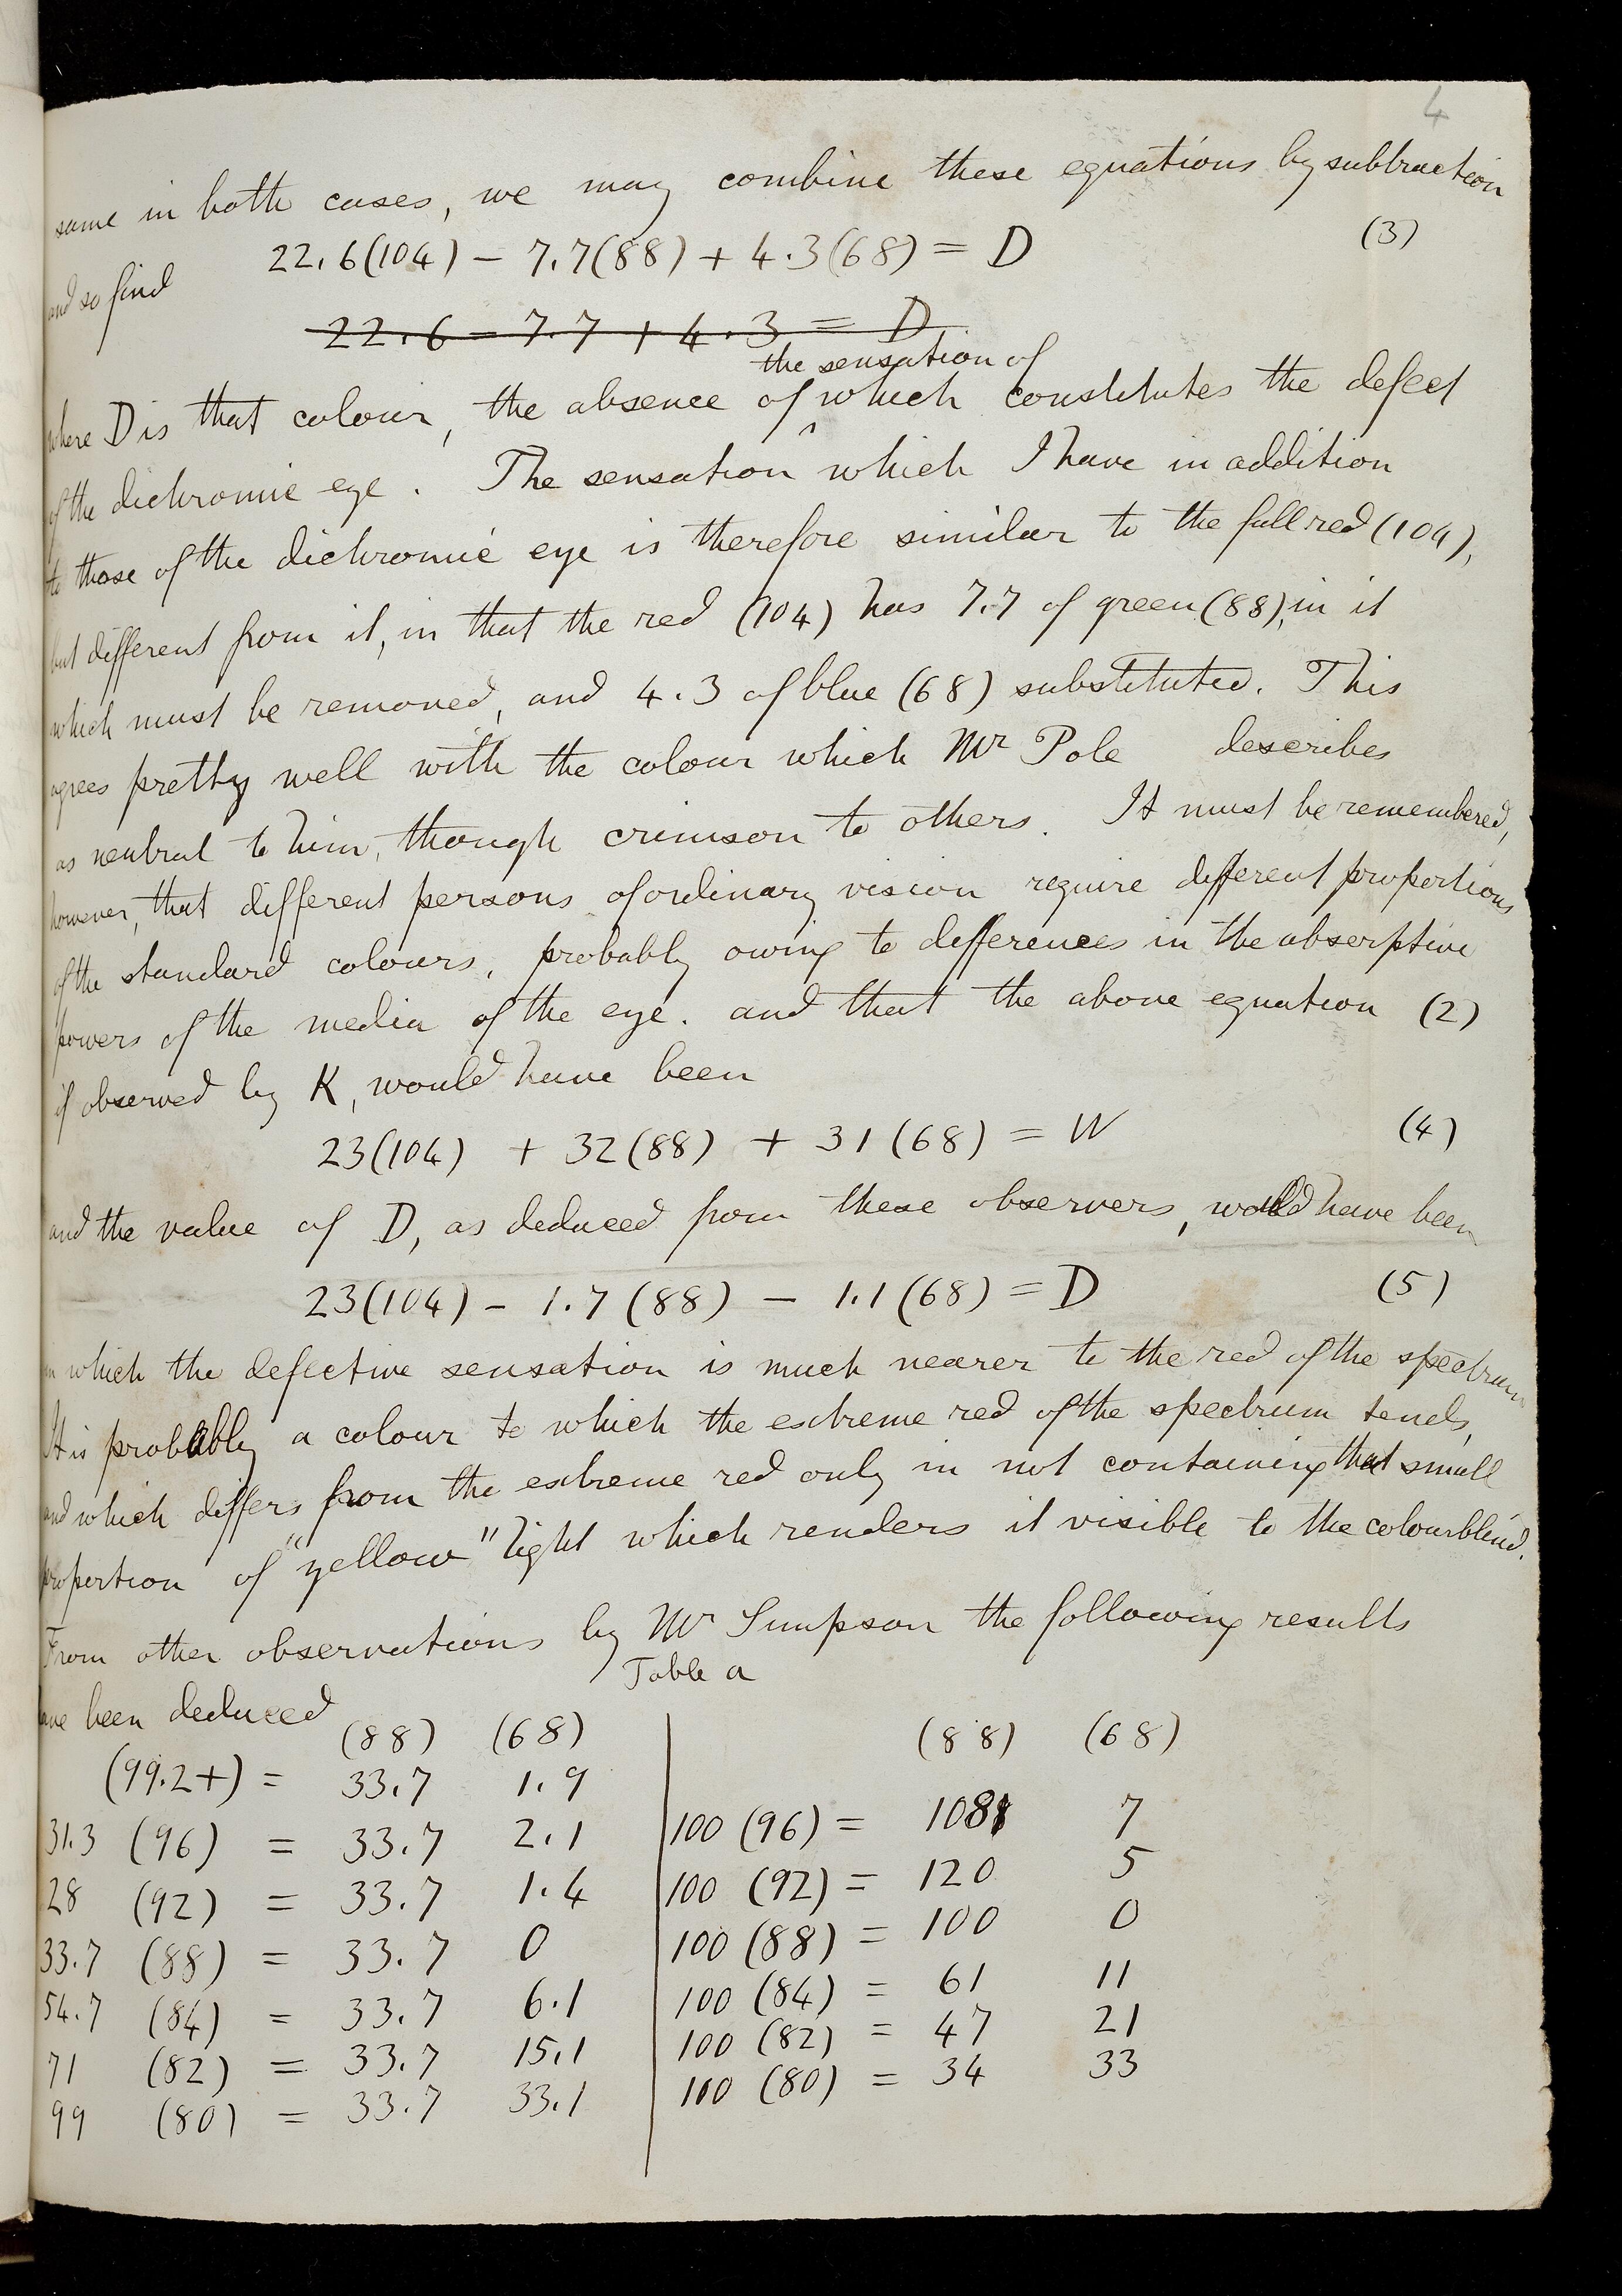 4
same in both cases, we may combine these equations by subtraction
and so find 22.6(104) – 7.7(88) + 4.3(68) = D (3)
22.6 – 7.7 + 4.3 = D
the sensation of
where D is that colour, the absence of ‸ which constitutes the defect
of the dichromic eye. The sensation which I have in addition
to those of the dichromic eye is therefore similar to the full red (104),
but different from it, in that the red (104) has 7.7 of green (88), in it
which must be removed, and 4.3 of blue (68) substituted. This
agrees pretty well with the colour which Mr Pole describes
as neutral to him, though crimson to others. It must be remembered,
however, that different persons of ordinary vision require different proportions
of the standard colours, probably owing to differences in the absorptive
powers of the media of the eye. and that the above equation (2)
if observed by K, would have been
23(104) + 32(88) + 31(68) = W (4)
and the value of D, as deduced from these observers, would have been
23(104) – 1.7(88) – 1.1(68) = D (5)
in which the defective sensation is much nearer to the red of the spectrum
It is probably a colour to which the extreme red of the spectrum tends,
and which differs from the extreme red only in not containing that small
proportion of "yellow" light which renders it visible to the colourblind.
From other observations by Mr Simpson the following results
Table a
have been deduced
(88) (68) (88) (68)
(99.2+) = 33.7 1.9
31.3 (96) = 33.7 2.1 100 (96) = 108 7
28 (92) = 33.7 1.4 100 (92) = 120 5
33.7 (88) = 33.7 0 100 (88) = 100 0
54.7 (84) = 33.7 6.1 100 (84) = 61 11
71 (82) = 33.7 15.1 100 (82) = 47 21
99 (80) = 33.7 33.1 100 (80) = 34 33